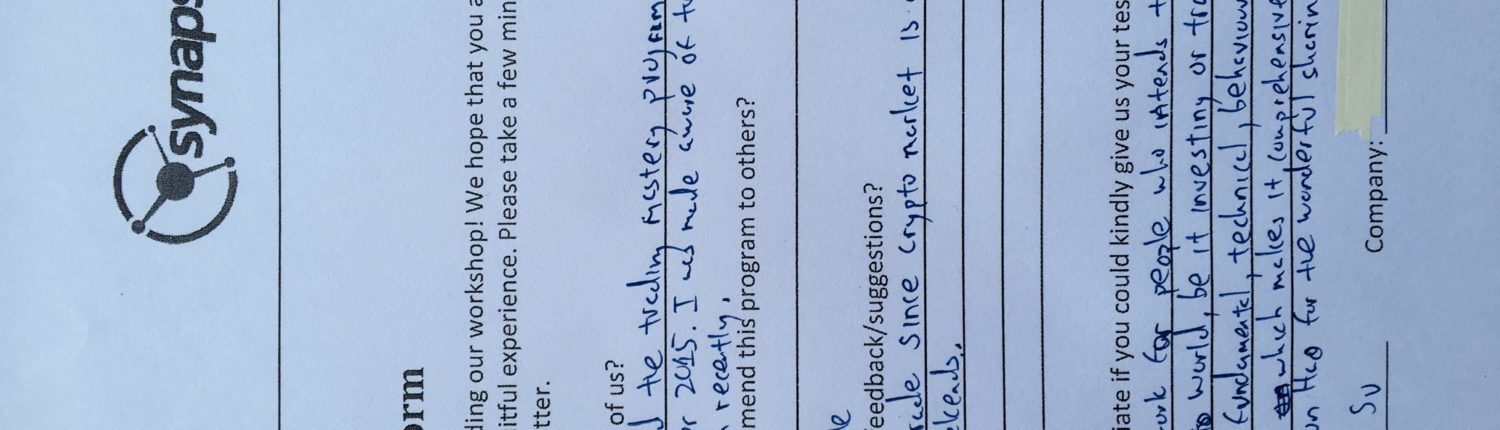 synaps
orm
ding our workshop! We hope that you a
itful experience. Please take a few min
tter.
of us?
d the trading mastery program
or 2015. I was made aware of tu
recently.
mend this program to others?
feedback/suggestions?
rade since crypto market is
ekends.
iate if you could kindly give us your tes
ork for people who intends t
world, be it investing or tra
fundamental, technical, behaviour
which makes it comprehensive
un Hao for the wonderful sharin
Su Company: